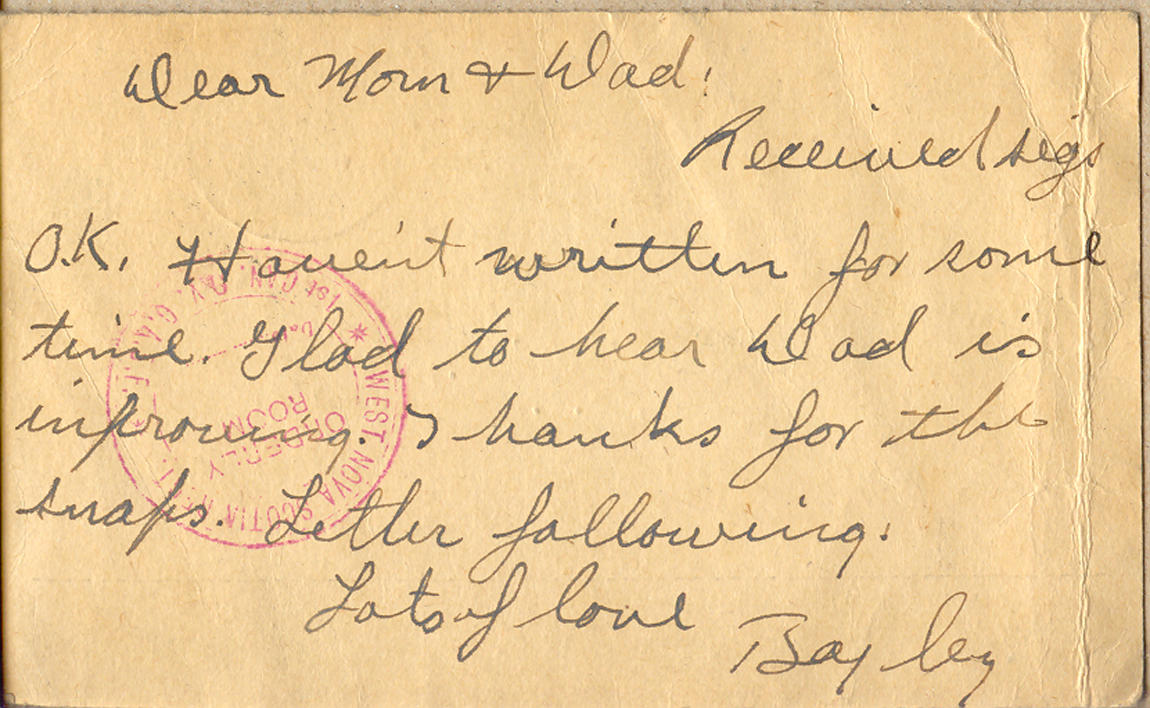 Dear Mom & Dad:
Received sigs
O.K. Haven't written for some
time. Glad to hear Dad is
improving. Thanks for the
snaps. Letter following.
Lots of love
Bayley
WEST NOVA SCOTIA
1st CAN.
ORDERLY
ROOM